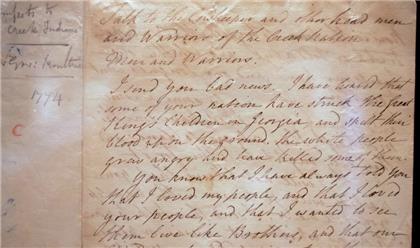 Creek Indians
1774
C
Talk to the Cowkeeper and other head men
and Warriors of the Creek Nation
Men and Warriors.
I send you bad news. I have heard that
some of your nation have struck the great
King's Children in Georgia and spilt their
blood upon the ground. the white people
grew angry and have killed some of them
You know that I have always told you
that I loved my people, and that I loved
your people, and that I wanted to see
them live like Brothers, and that one